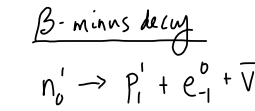 β-minus decay
n₀¹ → p₁¹ + e₋₁⁰ + V̅